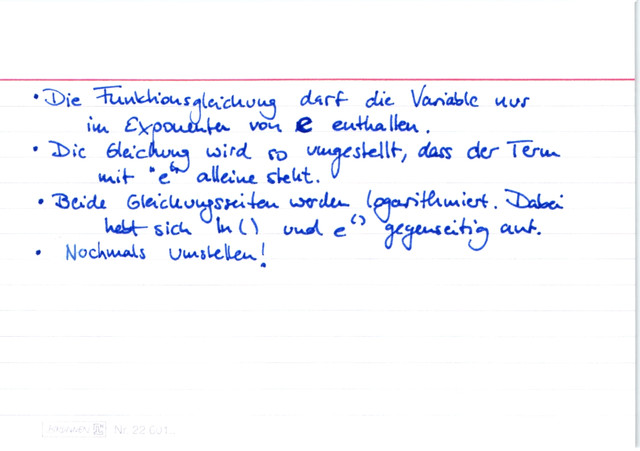 • Die Funktionsgleichung darf die Variable nur
im Exponenten von e enthalten.
• Die Gleichung wird so umgestellt, dass der Term
mit "e⁽⁾" alleine steht.
• Beide Gleichungsseiten werden logarithmiert. Dabei
hebt sich ln() und e⁽⁾ gegenseitig auf.
• Nochmals umstellen!
Nr. 22 001